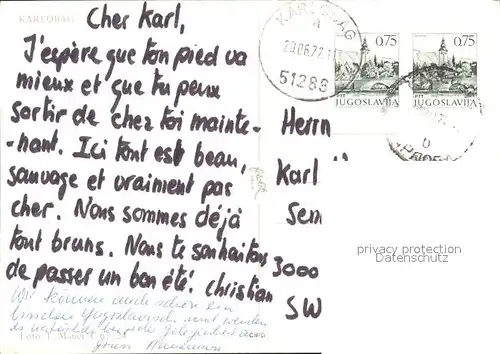 KARLOBAG
Cher Karl,
J'espère que ton pied va
mieux et que tu peux
sortir de chez toi mainte-
-nant. Ici tout est beau,
sauvage et vraiment pas
cher. Nous sommes déjà
tout bruns. Nous te souhaitons
de passer un bon été! Christian
Wir können auch schon ein
bisschen Jugoslawisch und werden
Foto T. Mateš
KARLOBAG
51288
0,75
JUGOSLAVIJA
0,75
JUGOSLAVIJA
Herrn
Karl
Sem
3000
SW
privacy protection
Datenschutz